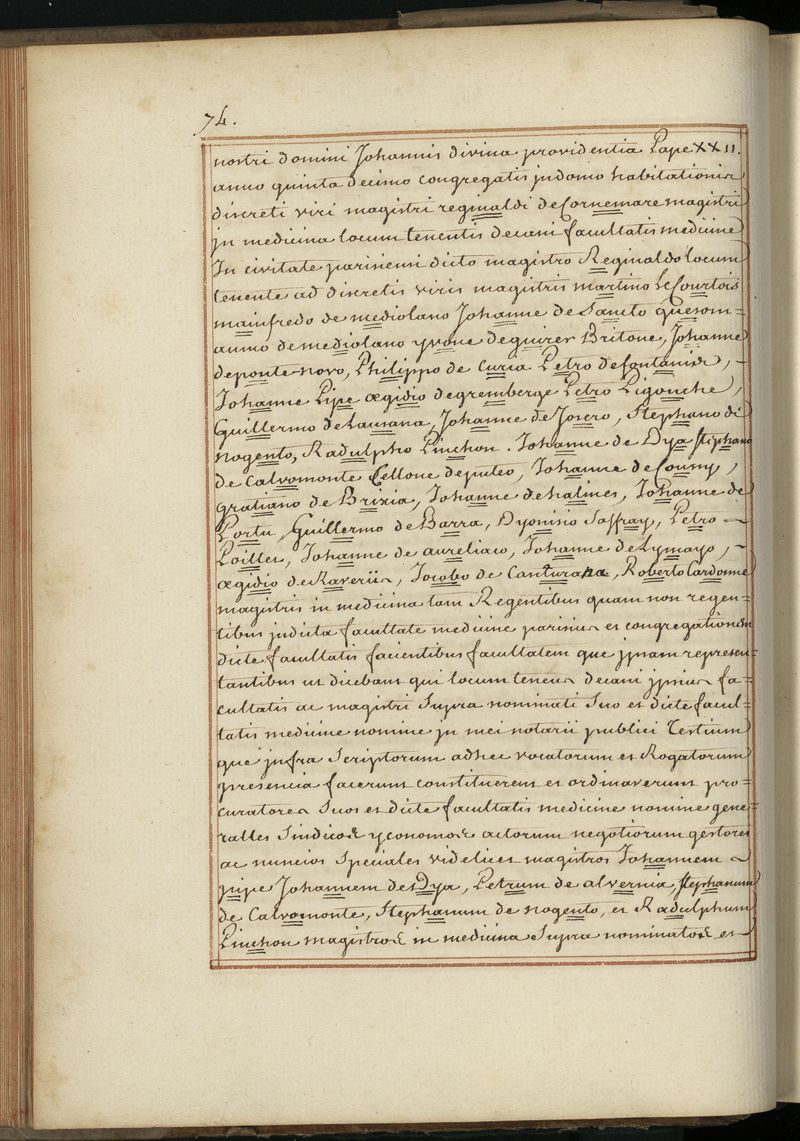 74.
nostri domini Johannis divina providentia Pape XXII.
anno quinta decimo congregatis in domo habitationis
discreti viri magistri reginaldi de Cornemare magistri
in medicina locum tenentis decani facultatis medicine
In civitate parisiensi dicto magistro Reginaldo locum
tenente ac discretis viris magistris martino le Courtois
mainfredo de mediolano Johanne de Sancto quesom=
anno de mediolano yvone de quirer Britone, Johanne
de ponte novo, Philippo de Curia Petro de fontanis,
Johanne Pipe ægidio de gremberge Petro Pigouche,
Guillermo de Lausana, Johanne de Josero, Stephano de
nogento, Radulpho Pinchon. Johanne de Dya Stephano
de Calvomonte Cellone de puteo, Johanne de Couing,
gratiano de Brixia, Johanne de halines, Johanne de
Portu, Guillermo de Barra, Dyonisio Saffray, Petro
Poiller, Johanne de aureliaco, Johanne de Lymayo,
ægidio de Raverii, Jocobo de Canturana, Roberto Cardonne
magistris in medicina tam Regentibus quam non regen=
tibus in dicta facultate medicine parisius et congregationem
dicte facultatis facientibus facultatem que ipsam represen=
tantibus ut dicebant qui locum tenens decani ipsius fa=
cultatis ac magistri Supra nominati Suo et dicte facul=
tatis medicine nomine in mei notarii publici Testium
que infra Scriptorum ad hec vocatorum et Rogatorum
presencia fecerunt constituerent et ordinaverunt pro=
curatores Suos et dicte facultatis medicine nomine gene=
ralles Sindicos yconomos actorum negotiorum gestores
ac nuncios Speciales videlicet magistros Johannem
pipe Johannem des Dya, Petrum de alvernia, Stephanum
de Calvomonte, Stephanum de nogento, et Radulphum
Pinchon magistros in medicina Supra nominatos et